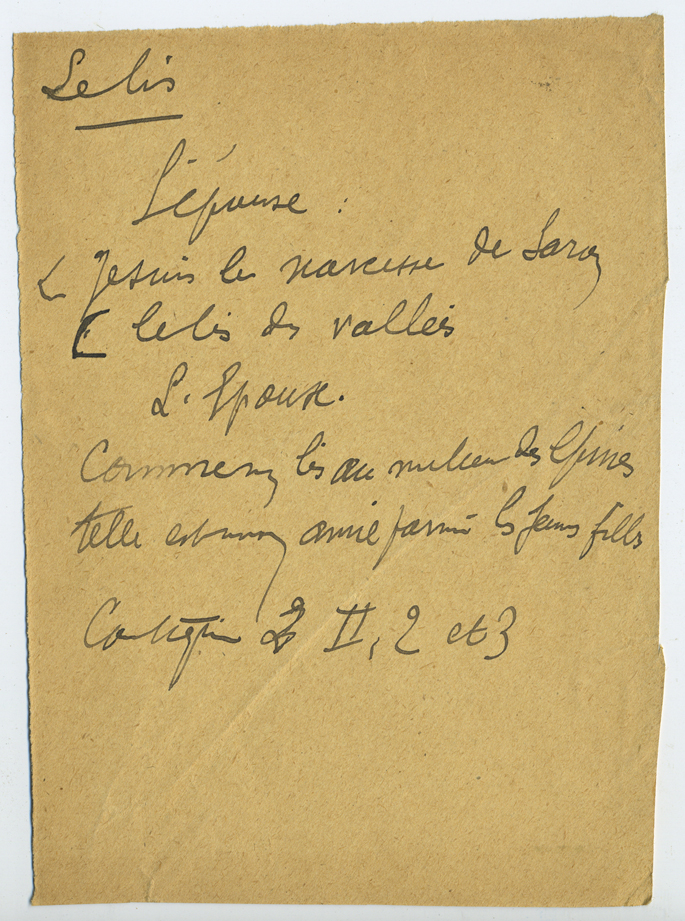 Le lis
L'épouse :
Je suis le narcisse de Saron
le lis des vallées
L'Epouse.
Comme un lis au milieu des Epines
telle est mon amie parmi les jeunes filles
Cantique II, 2 et 3